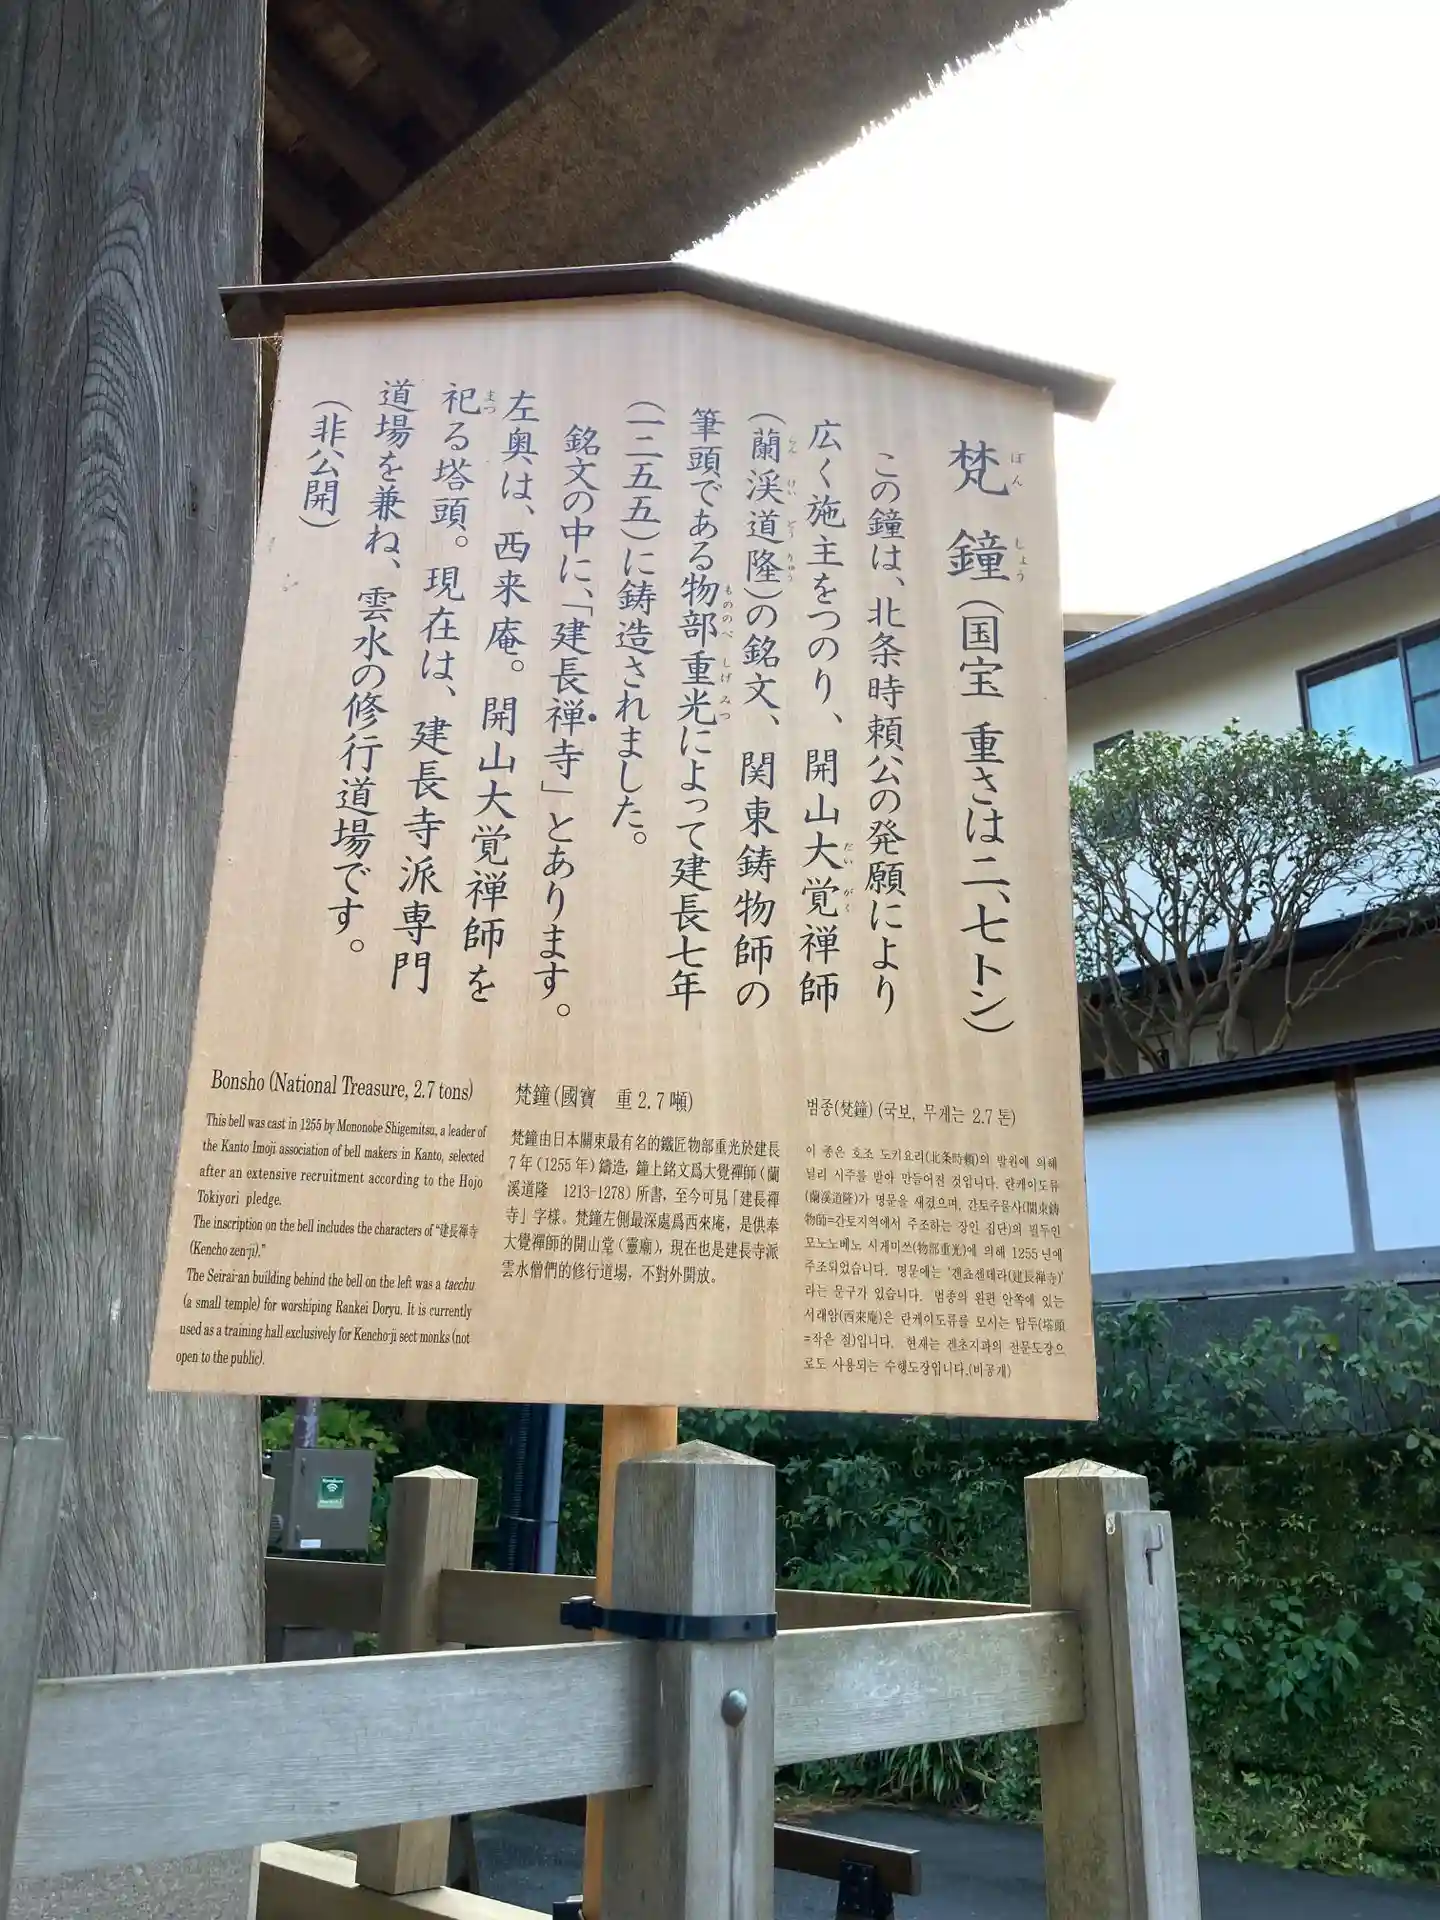 梵鐘（国宝　重さは二、七トン）
ぼんしょう
この鐘は、北条時頼公の発願により
広く施主をつのり、開山大覚禅師
だいがく
（蘭渓道隆）の銘文、関東鋳物師の
らんけいどうりゅう
筆頭である物部重光によって建長七年
もののべしげみつ
（一二五五）に鋳造されました。
銘文の中に、「建長禅寺」とあります。
左奥は、西来庵。開山大覚禅師を
祀る塔頭。現在は、建長寺派専門
まつ
道場を兼ね、雲水の修行道場です。
（非公開）
Bonsho (National Treasure, 2.7 tons)
This bell was cast in 1255 by Mononobe Shigemitsu, a leader of
the Kanto Imoji association of bell makers in Kanto, selected
after an extensive recruitment according to the Hojo
Tokiyori pledge.
The inscription on the bell includes the characters of “建長禅寺
(Kencho zen-ji).”
The Seirai-an building behind the bell on the left was a tacchu
(a small temple) for worshiping Rankei Doryu. It is currently
used as a training hall exclusively for Kencho-ji sect monks (not
open to the public).
梵鐘（國寶　重 2.7 噸）
梵鐘由日本關東最有名的鐵匠物部重光於建長
7 年（1255 年）鑄造，鐘上銘文爲大覺禪師（蘭
溪道隆　1213-1278）所書，至今可見「建長禪
寺」字樣。梵鐘左側最深處爲西來庵，是供奉
大覺禪師的開山堂（靈廟），現在也是建長寺派
雲水僧們的修行道場，不對外開放。
범종(梵鐘) (국보, 무게는 2.7 톤)
이 종은 호조 도키요리(北条時頼)의 발원에 의해
널리 시주를 받아 만들어진 것입니다. 란케이도류
(蘭渓道隆)가 명문을 새겼으며, 간토주물사(関東鋳
物師=간토지역에서 주조하는 장인 집단)의 필두인
모노노베노 시게미쓰(物部重光)에 의해 1255 년에
주조되었습니다. 명문에는 '겐쵸젠데라(建長禅寺)'
라는 문구가 있습니다. 범종의 왼편 안쪽에 있는
서래암(西来庵)은 란케이도류를 모시는 탑두(塔頭
=작은 절)입니다. 현재는 겐초지파의 전문도장으
로도 사용되는 수행도장입니다.(비공개)